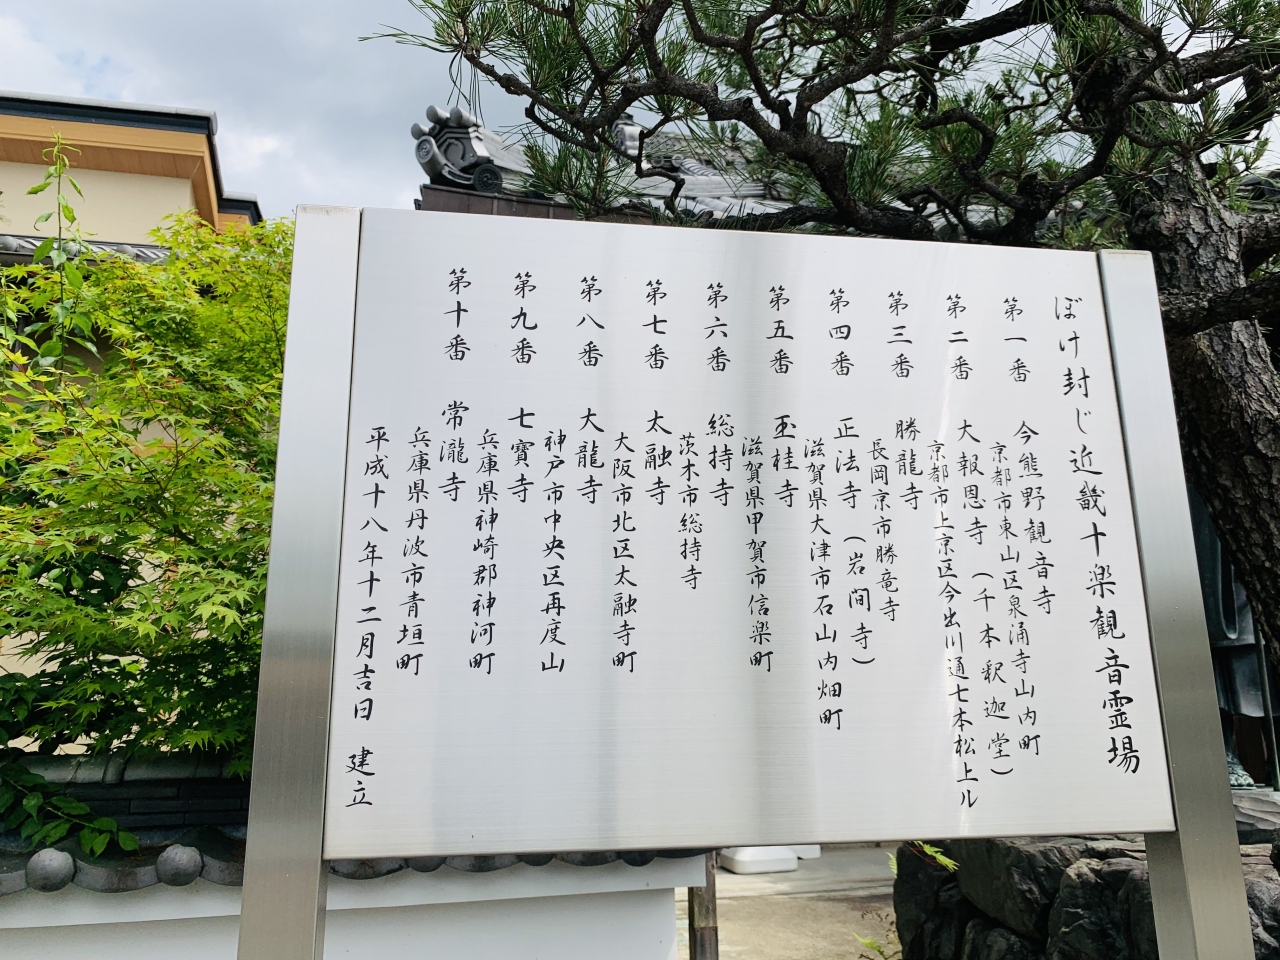 ぼけ封じ近畿十楽観音霊場
第一番 今熊野観音寺
京都市東山区泉涌寺山内町
第二番 大報恩寺（千本釈迦堂）
京都市上京区今出川通七本松上ル
第三番 勝龍寺
長岡京市勝竜寺
第四番 正法寺（岩間寺）
滋賀県大津市石山内畑町
第五番 玉桂寺
滋賀県甲賀市信楽町
第六番 総持寺
茨木市総持寺
第七番 太融寺
大阪市北区太融寺町
第八番 大龍寺
神戸市中央区再度山
第九番 七寶寺
兵庫県神崎郡神河町
第十番 常瀧寺
兵庫県丹波市青垣町
平成十八年十二月吉日 建立